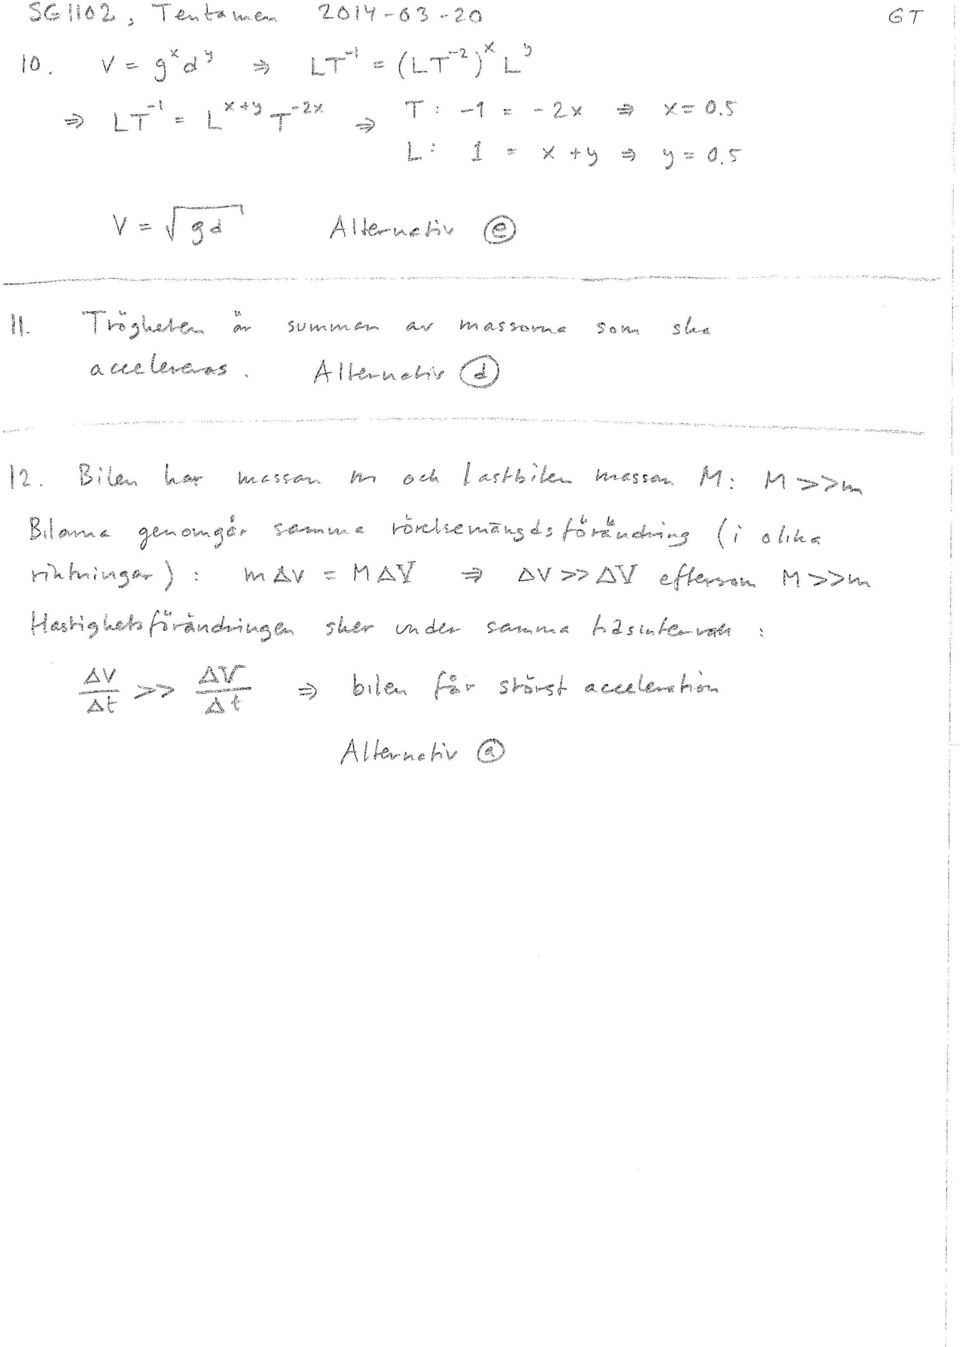 SG1102, Tentamen 2014-03-20 GT
10. V = g^x d^y ⇒ LT^-1 = (LT^-2)^x L^y
⇒ LT^-1 = L^x+y T^-2x ⇒ T: -1 = -2x ⇒ x = 0.5
L: 1 = x + y ⇒ y = 0.5
V = √gd Alternativ (e)
11. Trögheten är summan av massorna som ska
accelereras. Alternativ (d)
12. Bilen har massan m och lastbilen massan M: M >> m
Bilarna genomgår samma rörelsemängdsförändring (i olika
riktningar): m Δv = M ΔV ⇒ Δv >> ΔV eftersom M >> m
Hastighetsförändringen sker under samma tidsintervall:
Δv/Δt >> ΔV/Δt ⇒ bilen får störst acceleration
Alternativ (a)